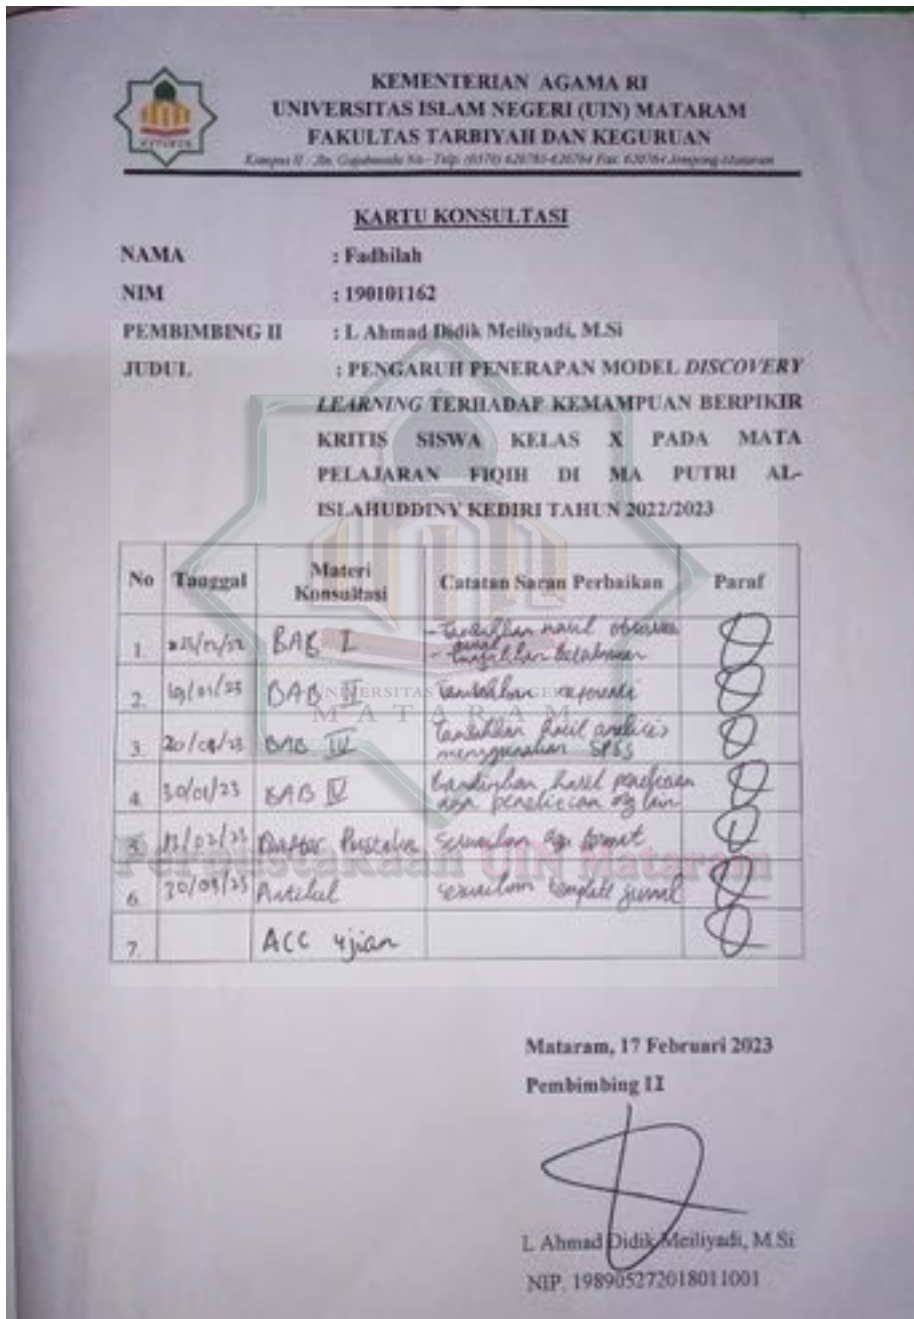 KEMENTERIAN AGAMA RI
UNIVERSITAS ISLAM NEGERI (UIN) MATARAM
FAKULTAS TARBIYAH DAN KEGURUAN
Kampus II : Jln. Gajahmada No- Telp. (0370) 620783-620784 Fax. 620784 Jempong-Mataram
KARTU KONSULTASI
NAMA : Fadhilah
NIM : 190101162
PEMBIMBING II : L Ahmad Didik Meiliyadi, M.Si
JUDUL : PENGARUH PENERAPAN MODEL DISCOVERY
LEARNING TERHADAP KEMAMPUAN BERPIKIR
KRITIS SISWA KELAS X PADA MATA
PELAJARAN FIQIH DI MA PUTRI AL-
ISLAHUDDINY KEDIRI TAHUN 2022/2023
No Tanggal Materi Konsultasi Catatan Saran Perbaikan Paraf
1. BAB I - Tambahkan hasil observasi
awal
2. BAB Tambahkan
3. BAB IV Tambahkan hasil analisis
menggunakan SPSS
4. 30/01/23 BAB IV Bandingkan hasil penelitian
dgn penelitian org lain
5. Daftar Pustaka Sesuaikan dgn format
6. Artikel sesuaikan template jurnal
7. ACC ujian
UNIVERSITAS ISLAM NEGERI
MATARAM
Perpustakaan UIN Mataram
Mataram, 17 Februari 2023
Pembimbing II
L Ahmad Didik Meiliyadi, M.Si
NIP. 198905272018011001